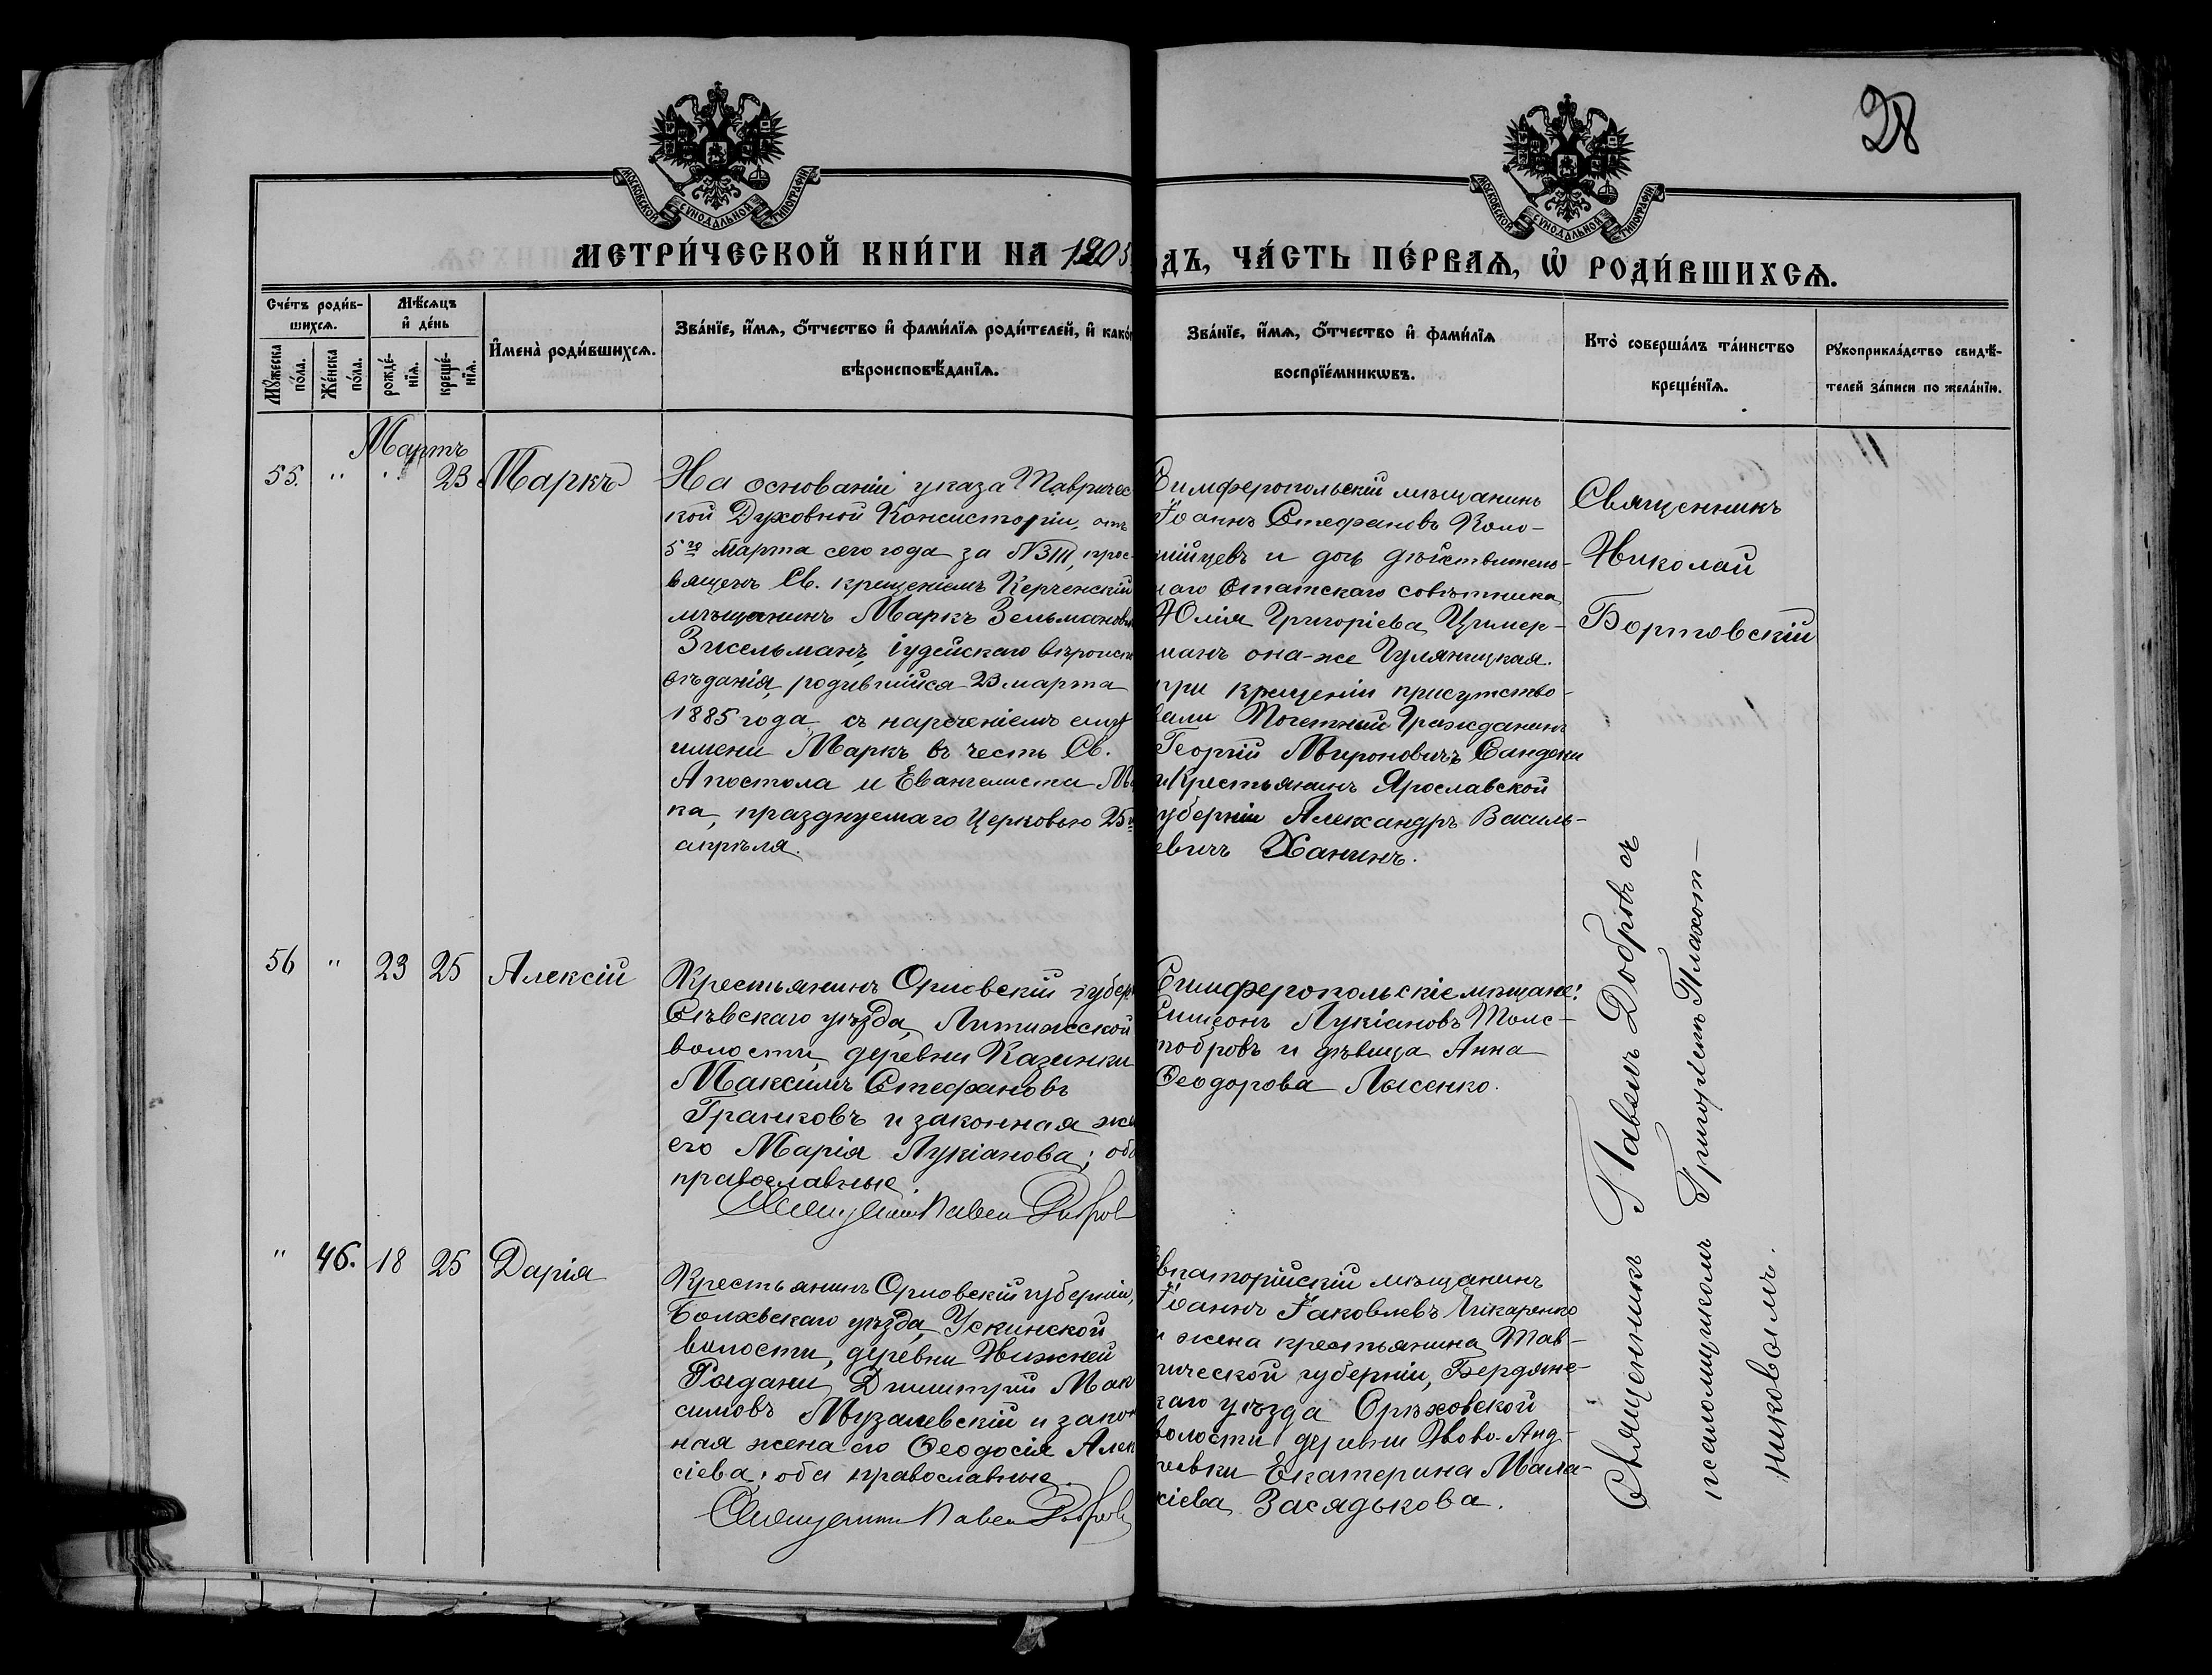 28
МОСКОВСКОЙ СѴНОДАЛЬНОЙ ТИПОГРАФІИ
МОСКОВСКОЙ СѴНОДАЛЬНОЙ ТИПОГРАФІИ
МЕТРИ́ЧЕСКОЙ КНИ́ГИ НА 1905
ДЪ, ЧА́СТЬ ПЕ́РВАѦ, Ѡ҆ РОДИ́ВШИХСѦ.
Сче́тъ роди́в-
шихсѧ.
Мѣ́сѧцъ
и҆ де́нь
Мꙋ́жеска по́ла.
Же́нска по́ла.
рожде́-нїѧ.
креще́-нїѧ.
И҆мена̀ роди́вшихсѧ.
Зва́нїе, и҆́мѧ, ѻ҆́тчество и҆ фами́лїѧ роди́телей, и҆ како́
вѣроисповѣ́данїѧ.
Зва́нїе, и҆́мѧ, ѻ҆́тчество и҆ фами́лїѧ
воспрїе́мникѡвъ.
Кто̀ соверша́лъ та́инство
креще́нїѧ.
Рꙋкоприкла́дство свидѣ́-
телей за́писи по жела́нїю.
Мартъ
55. " " 23 Маркъ
На основаніи указа Тавричес
кой Духовной Консисторіи, отъ
5го Марта сего года за №
вященъ Св. крещеніемъ Керченскій
мѣщанинъ Маркъ Зельмановъ
Зисельманъ, іудейскаго вѣроиспо
вѣданія, родившійся 23 марта
1885 года, съ нареченіемъ ему
имени Маркъ въ честь Св.
Апостола и Евангелиста Ма
ка, празднуемаго Церковью 25го
апрѣля.
Симферопольскій мѣщанинъ
Іоаннъ Стефановъ Коло-
мійцевъ и дочь дѣйствитель-
наго Статскаго совѣтника
Юлія Григоріева Цимер-
манъ она-же Гуляницкая.
при крещеніи присутство-
вали Почетный Гражданинъ
Георгій Мироновичъ
и Крестьянинъ Ярославской
губерніи Александръ Василь-
евичъ Ханинъ.
Священникъ
Николай
Бортовскій
56 " 23 25 Алексій
Крестьянинъ Орловскій губер
Сѣвскаго уѣзда, Литижской
волости, деревни Казинки
Максимъ Стефановъ
Гранковъ и законная же
его Марія Лукіанова; оба
православные.
Священникъ Павелъ Добров
Симферопольскіе мѣщане:
Симеонъ Лукіановъ Толс-
тобровъ и дѣвица Анна
Ѳеодорова Лысенко.
" 46. 18 25 Дарія
Крестьянинъ Орловскій губерніи,
Болховскаго уѣзда, Ускинской
волости, деревни Нижней
Рыдани Димитрій Мак
симовъ Музалевскій и закон
ная жена его Ѳеодосія Алек
сіева; оба православные.
Священникъ Павелъ Добров
Евпаторійскій мѣщанинъ
Іоаннъ Іаковлевъ Чикаренко
и жена крестьянина Тав-
рической губерніи, Бердянс-
каго уѣзда Орѣховской
волости деревни Ново-Анд-
реевки Екатерина Мала-
хіева Засядькова.
Священникъ Павелъ Добровъ съ
псаломщикомъ Григоріемъ Плахот-
никовымъ.